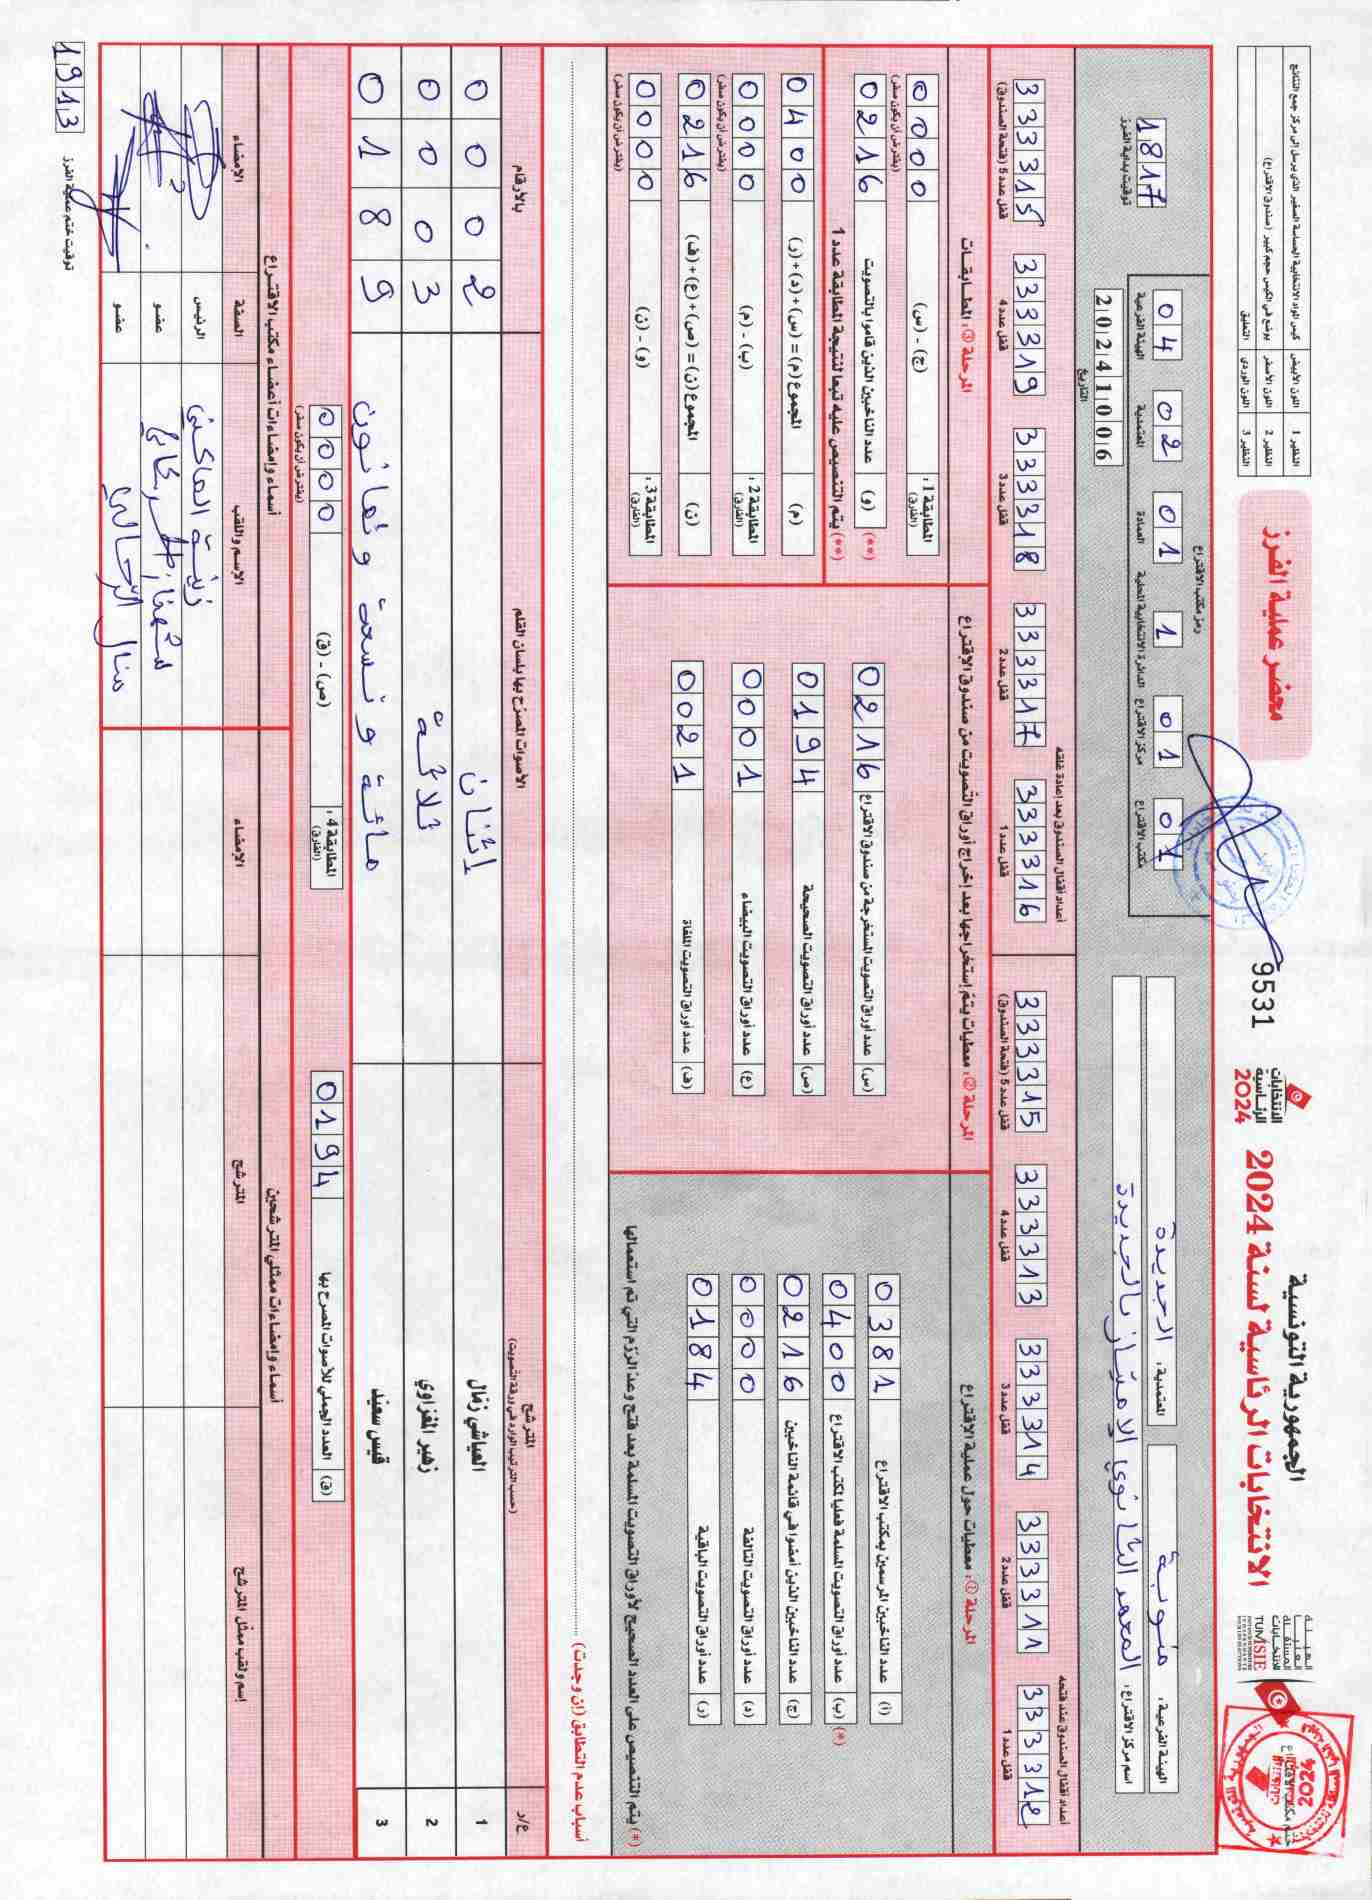 الجمهورية التونسية
الانتخابات الرئاسية لسنة 2024
الانتخابات
الرئاسية
2024
9531
محضر عملية الفرز
النظير 1 اللون الأبيض كيس المواد الانتخابية الحساسة الصغير الذي يرسل إلى مركز جمع النتائج
النظير 2 اللون الأصفر يوضع في الكيس حجم كبير (صندوق الاقتراع)
النظير 3 اللون الوردي التعليق
الهيئة الفرعية: منوبة
المعتمدية: الجديدة
اسم مركز الاقتراع: المعهد الثانوي الإمتياز بالجديدة
رمز مكتب الاقتراع
04 02 01 1 01 01
الهيئة الفرعية المعتمدية العمادة الدائرة الانتخابية المحلية مركز الاقتراع مكتب الاقتراع
20241006
التاريخ
1817
توقيت بداية الفرز
أعداد أقفال الصندوق عند فتحه
333312 قفل عدد 1
333311 قفل عدد 2
333314 قفل عدد 3
333313 قفل عدد 4
333315 قفل عدد 5 (فتحة الصندوق)
أعداد أقفال الصندوق بعد إعادة غلقه
333316 قفل عدد 1
333317 قفل عدد 2
333318 قفل عدد 3
333319 قفل عدد 4
333315 قفل عدد 5 (فتحة الصندوق)
المرحلة ①: معطيات حول عملية الاقتراع
(أ) عدد الناخبين المرسمين بمكتب الاقتراع 0381
(*) (ب) عدد أوراق التصويت المسلمة فعليا لمكتب الاقتراع 0400
(ج) عدد الناخبين الذين أمضوا في قائمة الناخبين 0216
(د) عدد أوراق التصويت التالفة 0000
(ر) عدد أوراق التصويت الباقية 0184
(*) يتم التنصيص على العدد الصحيح لأوراق التصويت المسلمة بعد فتح وعد الرزم التي تم استعمالها
المرحلة ②: معطيات يتم إستخراجها بعد إخراج أوراق التصويت من صندوق الاقتراع
(س) عدد أوراق التصويت المستخرجة من صندوق الاقتراع 0216
(ص) عدد أوراق التصويت الصحيحة 0194
(ع) عدد أوراق التصويت البيضاء 0001
(ف) عدد أوراق التصويت الملغاة 0021
المرحلة ③: المطابقات
المطابقة 1: (الفارق) (ج) - (س) 0000
(يفترض أن يكون صفر)
(**) (و) عدد الناخبين الذين قاموا بالتصويت 0216
(**) يتم التنصيص عليه تبعا لنتيجة المطابقة عدد 1
(م) المجموع (م) = (س) + (د) + (ر) 0400
المطابقة 2: (الفارق) (ب) - (م) 0000
(يفترض أن يكون صفر)
(ن) المجموع (ن) = (ص) + (ع) + (ف) 0216
المطابقة 3: (الفارق) (و) - (ن) 0000
(يفترض أن يكون صفر)
أسباب عدم التطابق (إن وجدت)
ع/ر المترشح الأصوات المصرح بها بلسان القلم بالأرقام
(حسب الترتيب الوارد في ورقة التصويت)
1 العياشي زمّال إثنان 0002
2 زهير المغزاوي ثلاثة 0003
3 قيس سعيد مائة وتسعة وثمانون 0189
(ق) العدد الجملي للأصوات المصرح بها 0194
المطابقة 4: (الفارق) (ص) - (ق) 0000
(يفترض أن يكون صفر)
أسماء وإمضاءات ممثلي المترشحين
إسم ولقب ممثل المترشح المترشح الإمضاء
أسماء وإمضاءات أعضاء مكتب الاقتراع
الإسم واللقب الصفة الإمضاء
الرئيس
عضو
منال عضو
توقيت ختم عملية الفرز
1913